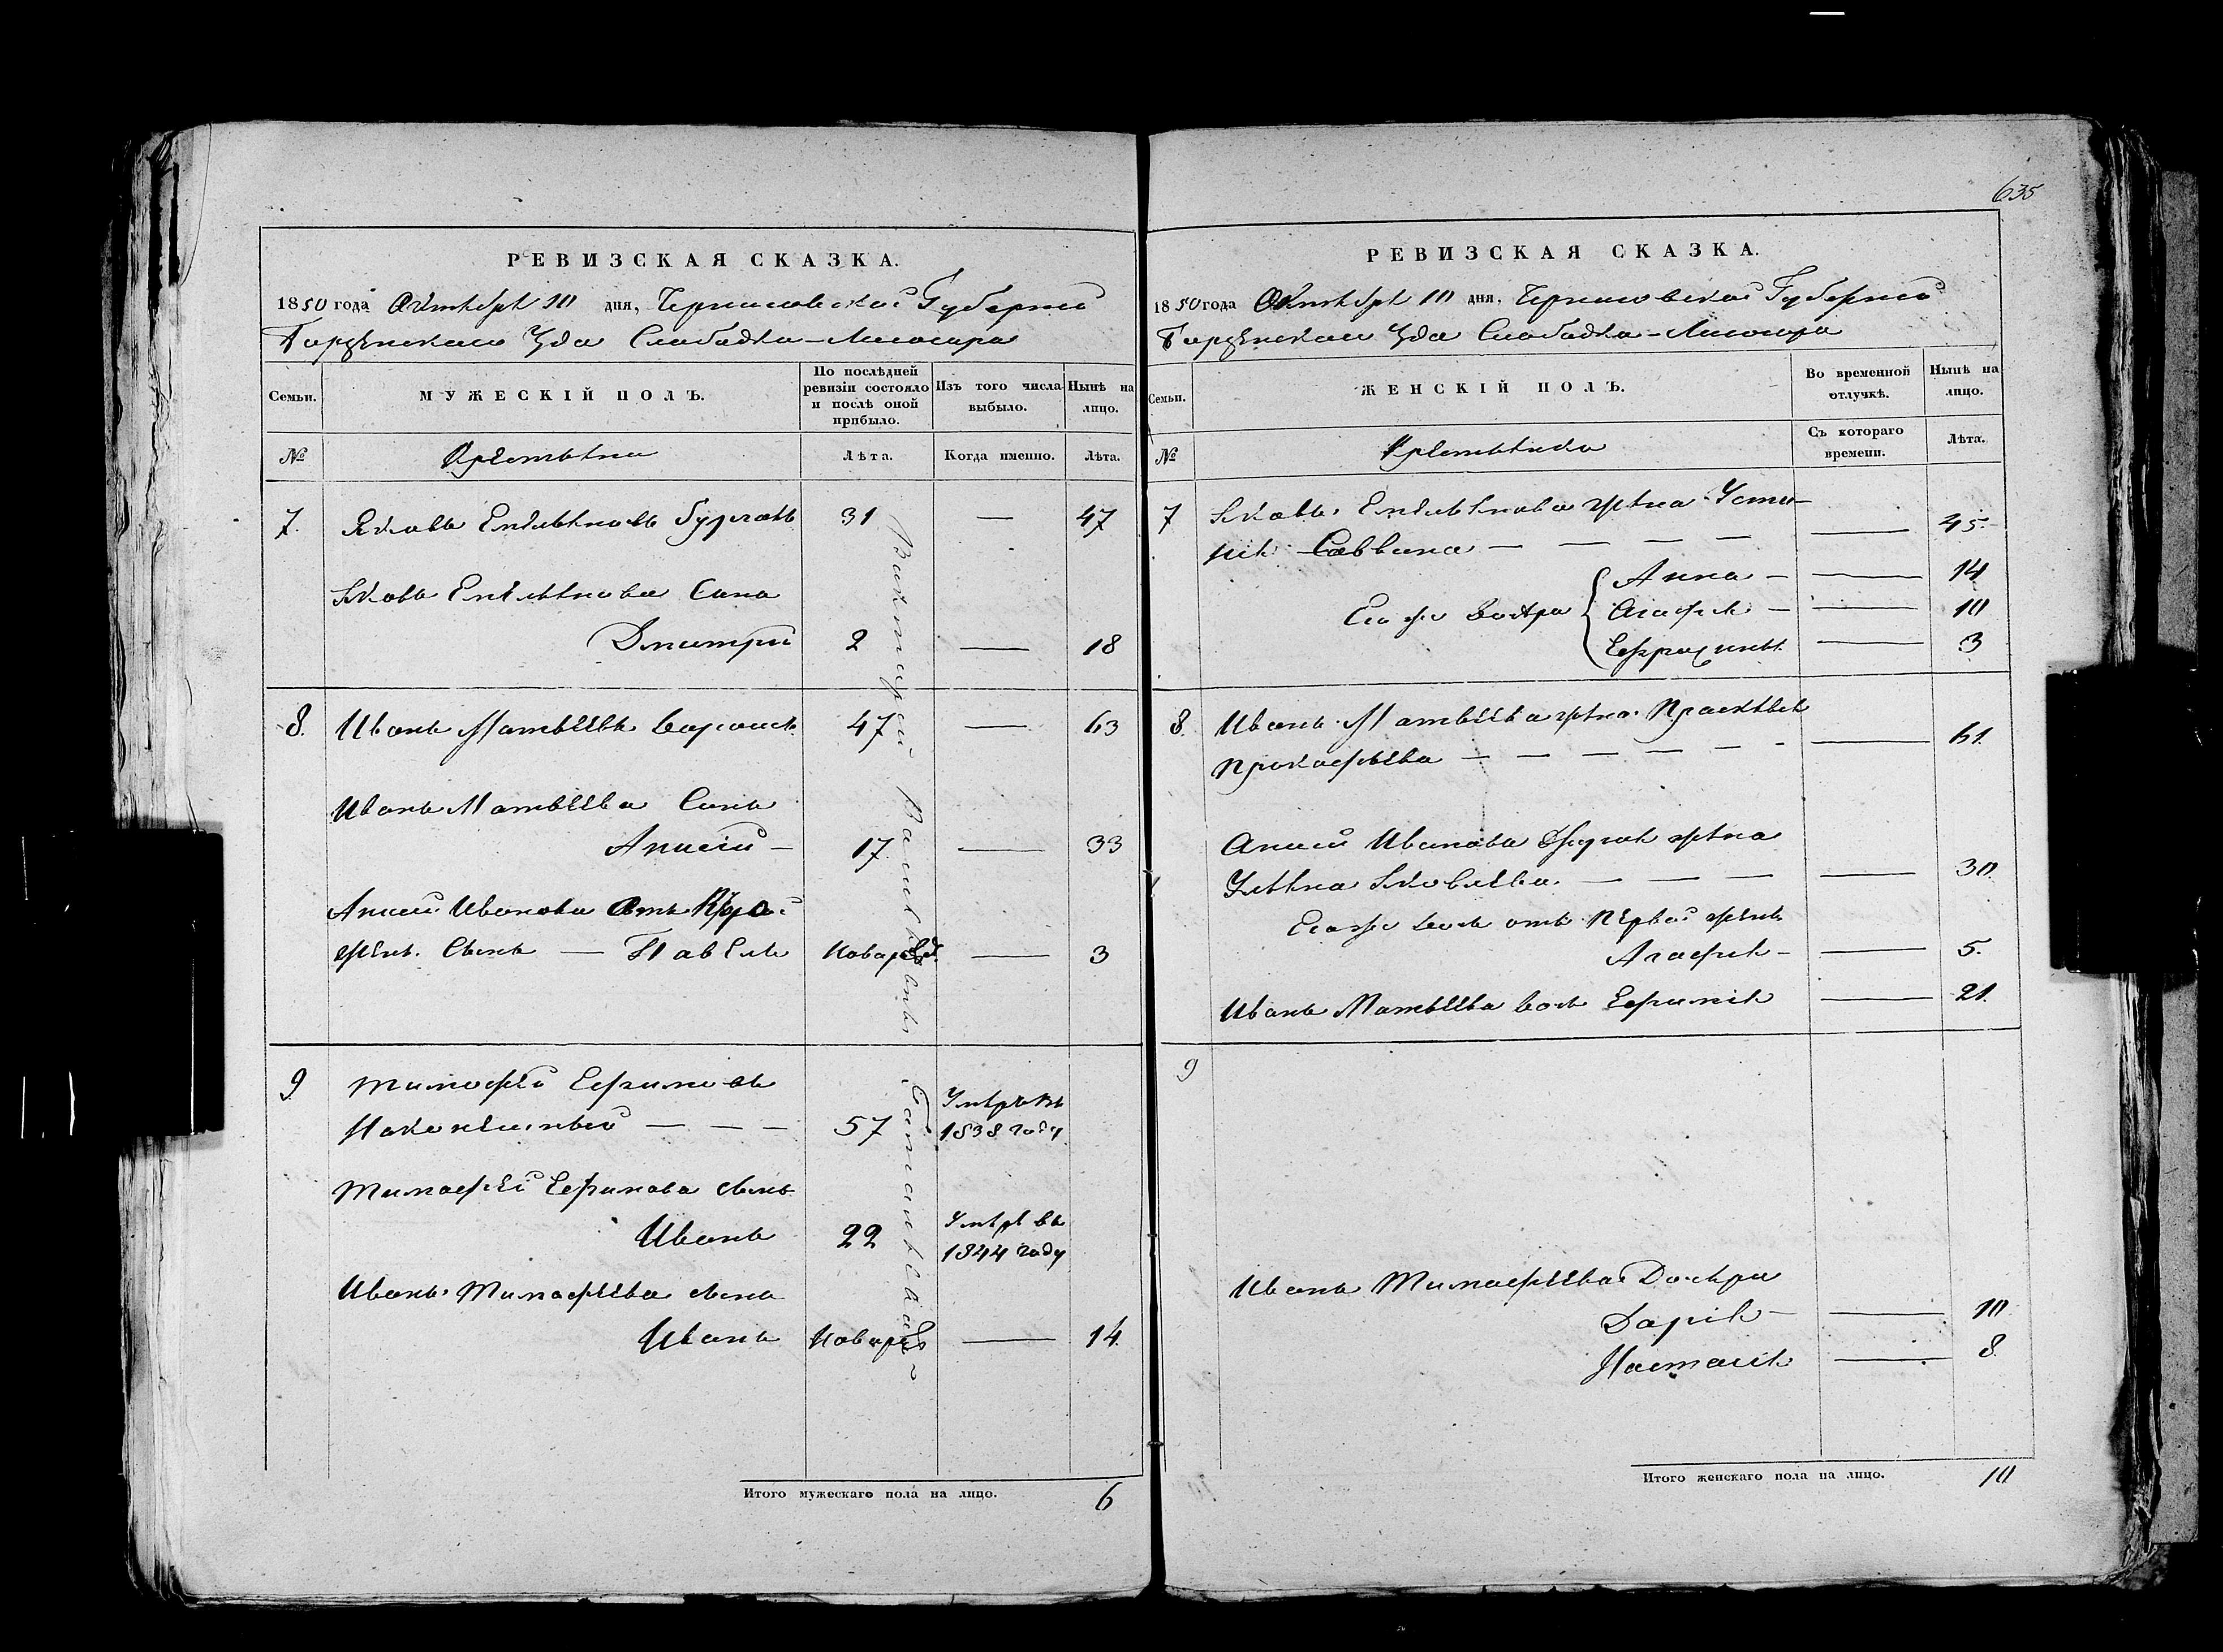 РЕВИЗСКАЯ СКАЗКА.
1850 года Октября 10 дня, Черниговской Губернии
Борзенского Уѣзда Слободка-Лисогора
Семьи.
МУЖЕСКІЙ ПОЛЪ.
По послѣдней ревизіи состояло и послѣ оной прибыло.
Изъ того числа выбыло.
Нынѣ на лицо.
№
Крестьяне
Лѣта.
Когда именно.
Лѣта.
7. Яковъ Емельяновъ 31 — 47
Яковъ Емельянова Сынъ
Дмитрій 2 — 18
8. Иванъ Матвѣевъ 47 — 63
Иванъ Матвѣева Сынъ
Анисій — 17 — 33
Анисій Иванова Отъ
жены Сынъ — Павелъ новорож. — 3
9 Тимофѣй Ефимовъ Умеръ въ
Наконешный — — — 57 1838 году
Тимофѣй Ефимова сынъ Умеръ въ
Иванъ 22 1844 году
Иванъ Тимофѣева сынъ
Иванъ новорож — 14
Итого мужескаго пола на лицо. 6
635
РЕВИЗСКАЯ СКАЗКА.
1850 года Октября 10 дня, Черниговской Губернии
Борзенского Уѣзда Слободка-Лисогора
Семьи.
ЖЕНСКІЙ ПОЛЪ.
Во временной отлучкѣ.
Нынѣ на лицо.
№
Крестьянки
Съ котораго времени.
Лѣта.
7 Яковъ Емельянова жена Усти-
нія Саввина — — — — — 45
Анна — — 14
Его же дочери Агафія — — 10
Ефросинія — 3
8. Иванъ Матвѣева жена Прасковья
Прокофьева — — — — — — — 61
Анисій Иванова Другая жена
Ульяна Яковлева — — — — 30
Его же дочь отъ Первой жены
Агафія — — 5.
Иванъ Матвѣева дочь Ефимія — 21.
9
Иванъ Тимофѣева Дочери
Дарія — — 10
Настасія — 8.
Итого женскаго пола на лицо. 10